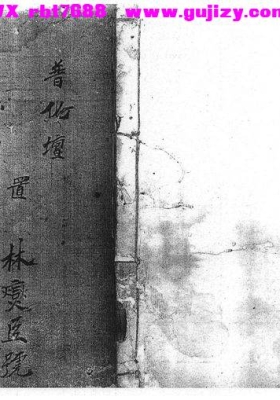 VX rbt7688 www.gujizy.com
普仙壇
置
林燮臣號